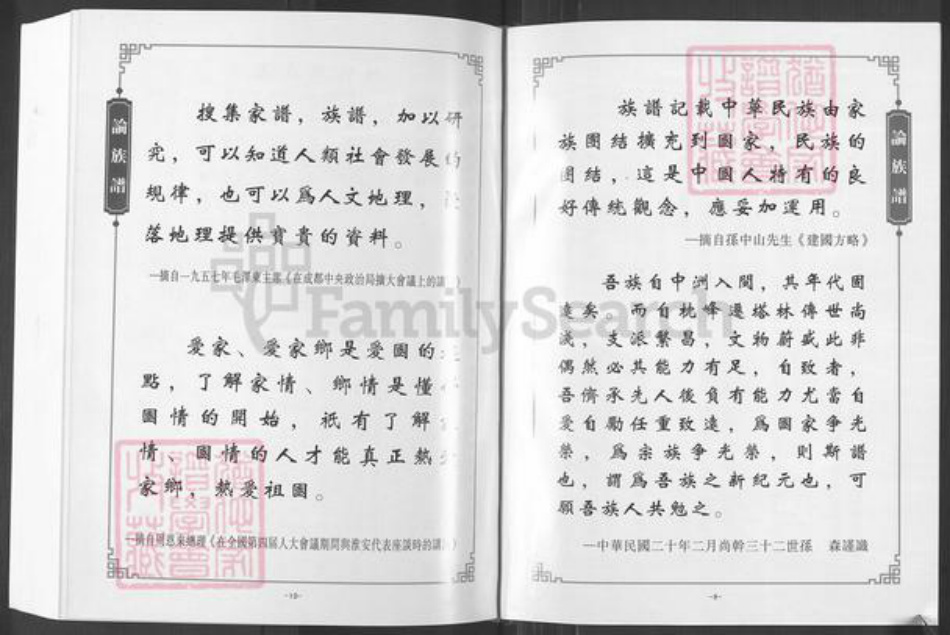 論族譜
族譜記載中華民族由家
族團結擴充到國家，民族的
團結，這是中國人特有的良
好傳統觀念，應妥加運用。
—摘自孫中山先生《建國方略》
吾族自中洲入閩，其年代固
遠矣。而自枕峰遷塔林傳世尚
淺，支派繁昌，文物蔚盛此非
偶然必其能力有足，自致者，
吾儕承先人後負有能力尤當自
愛自勵任重致遠，爲國家争光
榮，爲宗族争光榮，則斯譜
也，謂爲吾族之新紀元也，可
願吾族人共勉之。
—中華民國二十年二月尚幹三十二世孫 森謹識
-9-
論族譜
搜集家譜，族譜，加以研
究，可以知道人類社會發展的
規律，也可以爲人文地理，
落地理提供寶貴的資料。
—摘自一九五七年毛澤東主席《在成都中央政治局擴大會議上的講 》
愛家、愛家鄉是愛國的
點，了解家情、鄉情是懂
國情的開始，祇有了解
情、國情的人才能真正熱
家鄉，熱愛祖國。
—摘自周恩來總理《在全國第四届人大會議期間與淮安代表座談時的講 》
-10-
FamilySearch